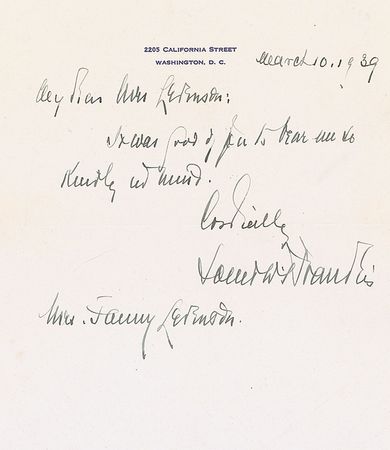 2205 CALIFORNIA STREET
WASHINGTON, D. C.
March 10, 1939
My dear Mrs Levinson:
It was good of you to bear me so
kindly in mind.
Cordially
Louis D Brandeis
Mrs. Fanny Levinson.